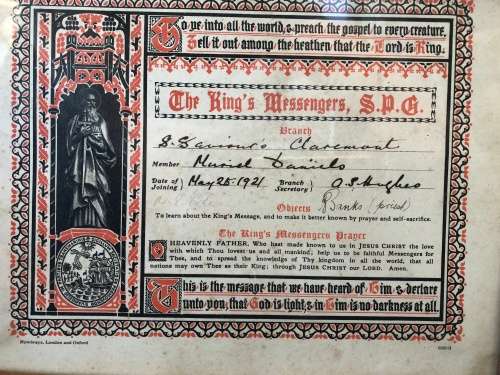 Go ye into all the world, & preach the gospel to every creature.
Tell it out among the heathen that the Lord is King.
The King's Messengers, S.P.G.
Branch
S. Saviour's Claremont
Member Muriel Daniels
Date of Joining May 25. 1921 Branch Secretary O S Hughes
Banks (priest)
Objects
To learn about the King's Message, and to make it better known by prayer and self-sacrifice.
The King's Messengers Prayer
O HEAVENLY FATHER, Who hast made known to us in JESUS CHRIST the love
with which Thou lovest us and all mankind; help us to be faithful Messengers for
Thee, and to spread the knowledge of Thy kingdom in all the world, that all
nations may own Thee as their King; through JESUS CHRIST our LORD. Amen.
This is the message that we have heard of Him, & declare
unto you, that God is light, & in Him is no darkness at all.
Mowbrays, London and Oxford